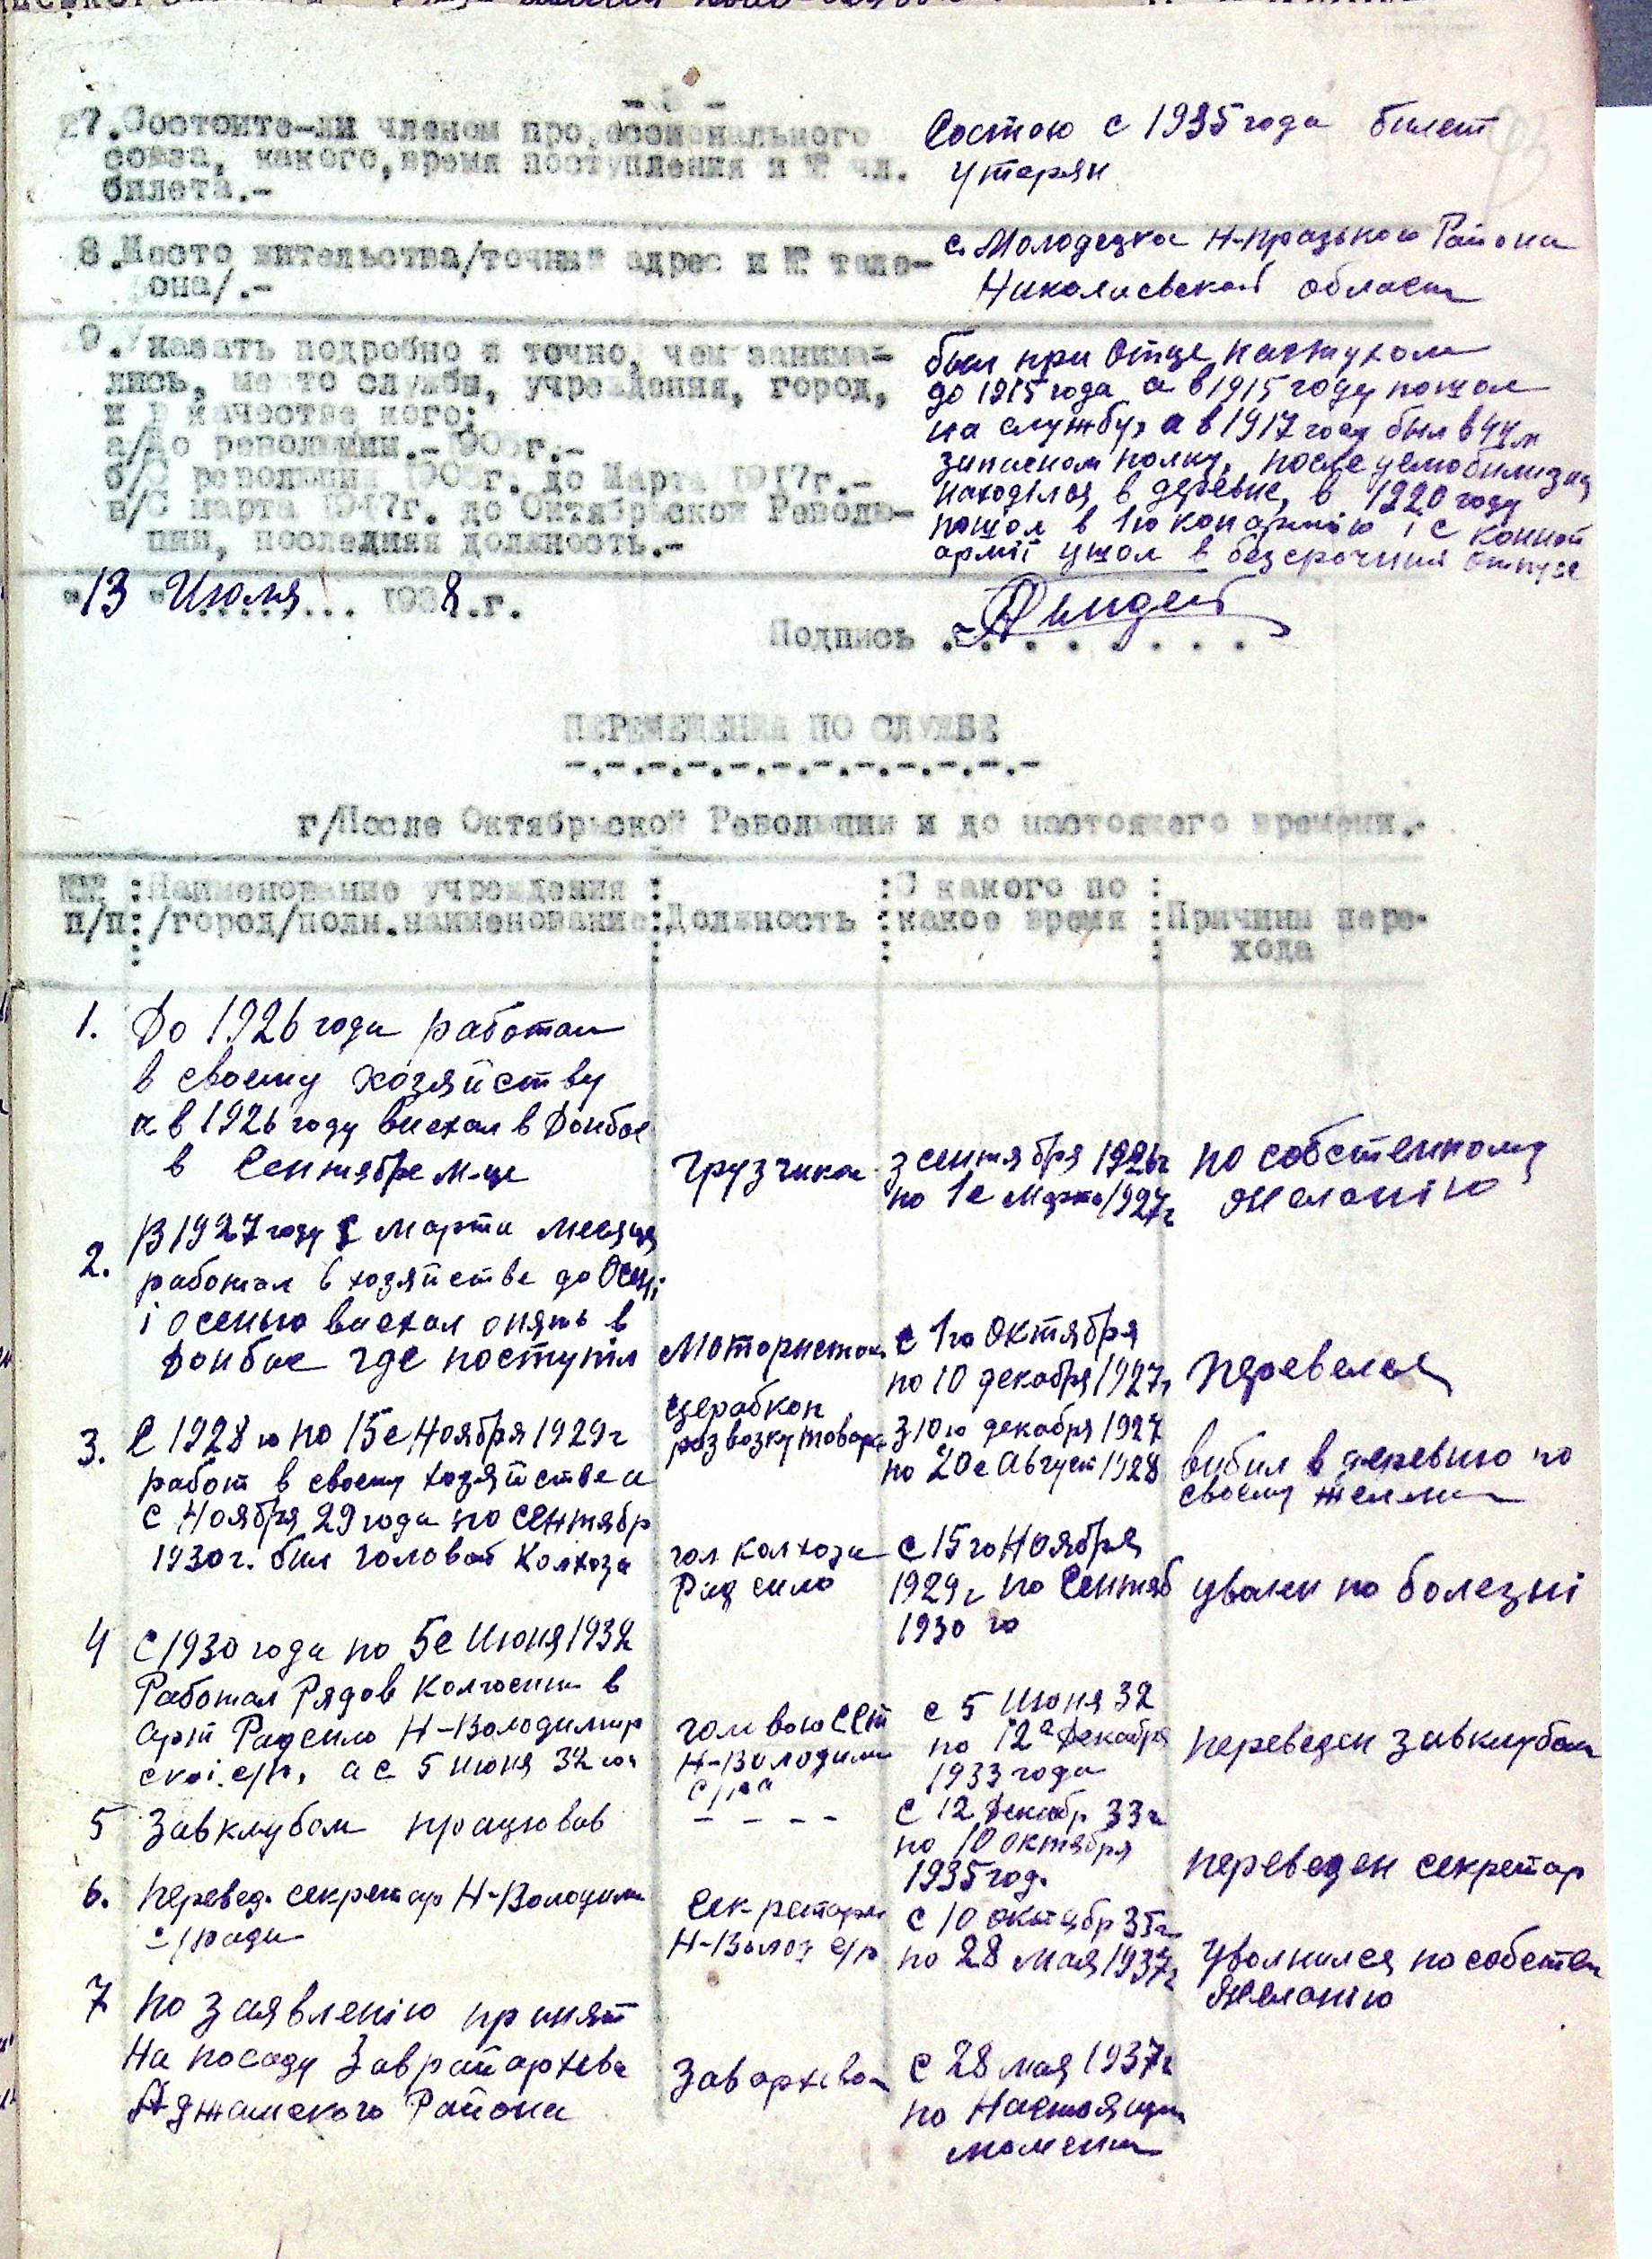 - 3 -
27.Состоите-ли членом профессионального
союза, какого,время поступления и № чл.
билета.-
Состою с 1935 года билет
утерян
8.Место жительства/точный адрес и № теле-
фона/.-
с. Молодецка Н-Празького Района
Николаевской области
29.Указать подробно и точно, чем занима-
лись, место службы, учреждения, город,
и в качестве кого:
а/До революции.-1905г.-
б/С революции 1905г. до Марта 1917г.-
в/С марта 1917г. до Октябрьской Револю-
ции, последняя должность.-
был при Отце пастухом
до 1915 года а в 1915 году пошол
на службу, а в 1917 году был в
запасном полку, после демобилизац
находілся в деревне, в 1920 году
пошол в 1ю конармію і с Конной
армії ушол в безсрочний отпуск
"13 "Июля... 1938.г.
Подпись
ПЕРЕМЕЩЕНИЯ ПО СЛУЖБЕ
г/После Октябрьской Революции и до настоящего времени.-
№№ п/п
Наименование учреждения
/город/полн.наименование
Должность
С какого по
какое время
Причины пере-
хода
1. До 1926 года работал
в своему хозяйству
а в 1926 году виехал в Донбас
в Сентябре м-це
грузчиком
з сентября 1926г
по 1е Марта 1927г
по собственному
желанію
2. В 1927 году с марта месяца
работал в хозяйстве до Осені
і осенью виехал опять в
Донбас где поступіл
Мотористом
с 1го Октября
по 10 декабря 1927г
перевелся
церабкоп
розвозку товара
з 10го декабря 1927
по 20е Август 1928
вибил в деревню по
своему желани
3. С 1928 го по 15е Ноября 1929г
работ в своему хозяйстве а
с Ноября 29 года по сентябр
1930г. бил головой Колхоза
гол колхоза
Рад село
с 15го Ноября
1929г по Сентяб
1930 го
уволен по болезні
4 С 1930 года по 5е Июня 1932
Работал Рядов Колгоспни в
Арт Радсело Н-Володимир
скої с/р, а с 5 июня 32 год
головою ССТ
Н-Володими
с/ра
с 5 Июня 32
по 12е Декабря
1933 года
переведен завклубом
5 Завклубом працював
- - - -
с 12 Декабр 33г
по 10 октября
1935 год.
переведен секретар
6. перевед. секретар Н-Володими
с/ради
Секретарем
Н-Волод с/р
с 10 октябр 35г
по 28 мая 1937г
Уволнился по собствен
желанію
7 по заявленію принят
На посаду Заврайархева
Аджамского Района
Завархевом
с 28 мая 1937г
по Настоящи
момент